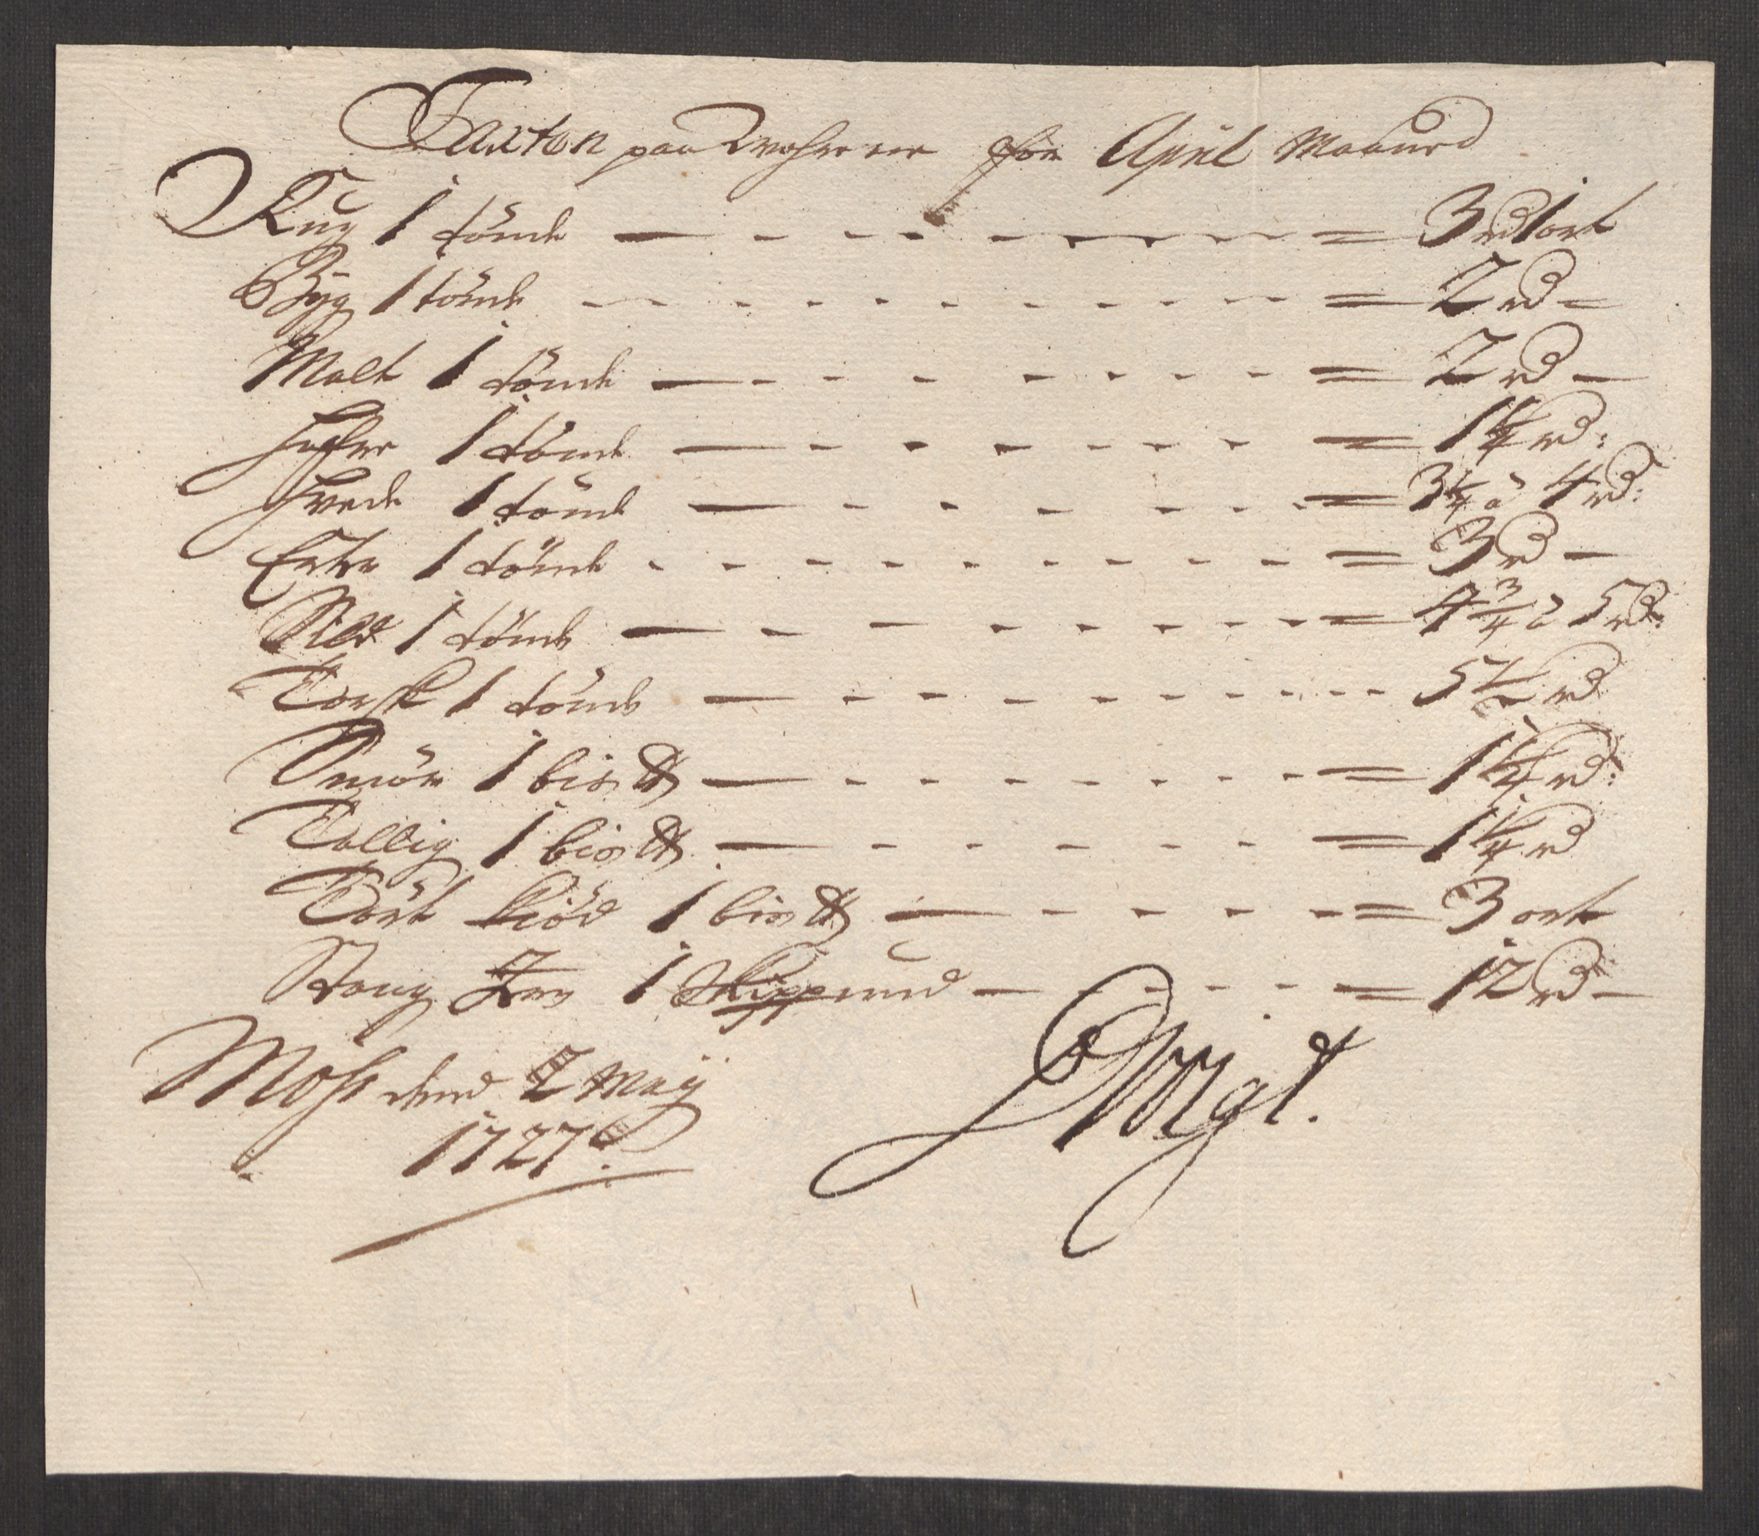 Taxten paa Wahrerne for April Maaned
Rug 1 tönde — 3 rd 1 ort
Byg 1 tönde — 2 rd –
Malt 1 tönde — 2 rd –
Hafre 1 tönde — 1¼ rd:
Hvede 1 tönde — 3¼ à 4 rd:
Erter 1 tönde — 3 rd –
Sild 1 tönde — 4¾ à 5 rd:
Torsk 1 tönde — 5½ rd
Smör 1 bis ℔ — 1¼ rd:
Tallig 1 bis ℔ — 1¼ rd
Tört kiöd 1 bis ℔ — 3 ort
Stang 1 Skippund — 12 rd –
Moss dend 2 Maij
1727